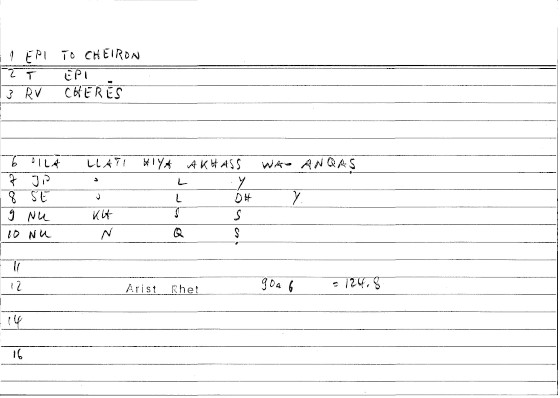 1 EPI TO CHEIRON
2 T EPI
3 RV CHERĒS
6 ʾILA LLATI HIYA AKHASS WA- ANQAṢ
7 JP ʾ L Y
8 SE ʾ L DH Y
9 NU KH S S
10 NU N Q Ṣ
11
12 Arist Rhet 90a6 =124.8
14
16